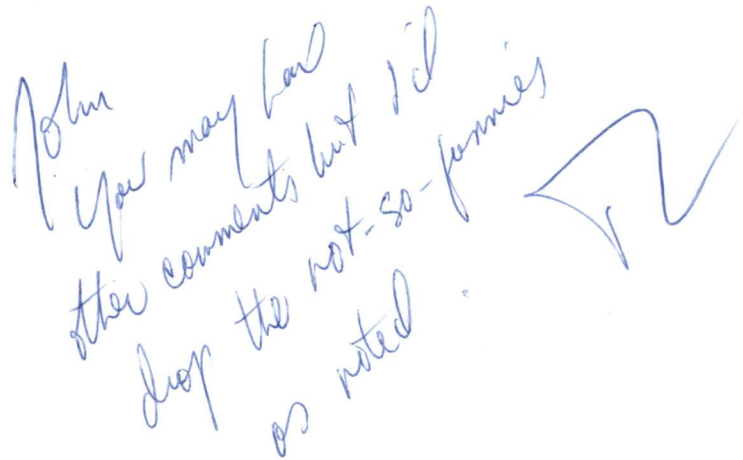 John
You may have
other comments but I'd
drop the not-so-funnies
as noted.